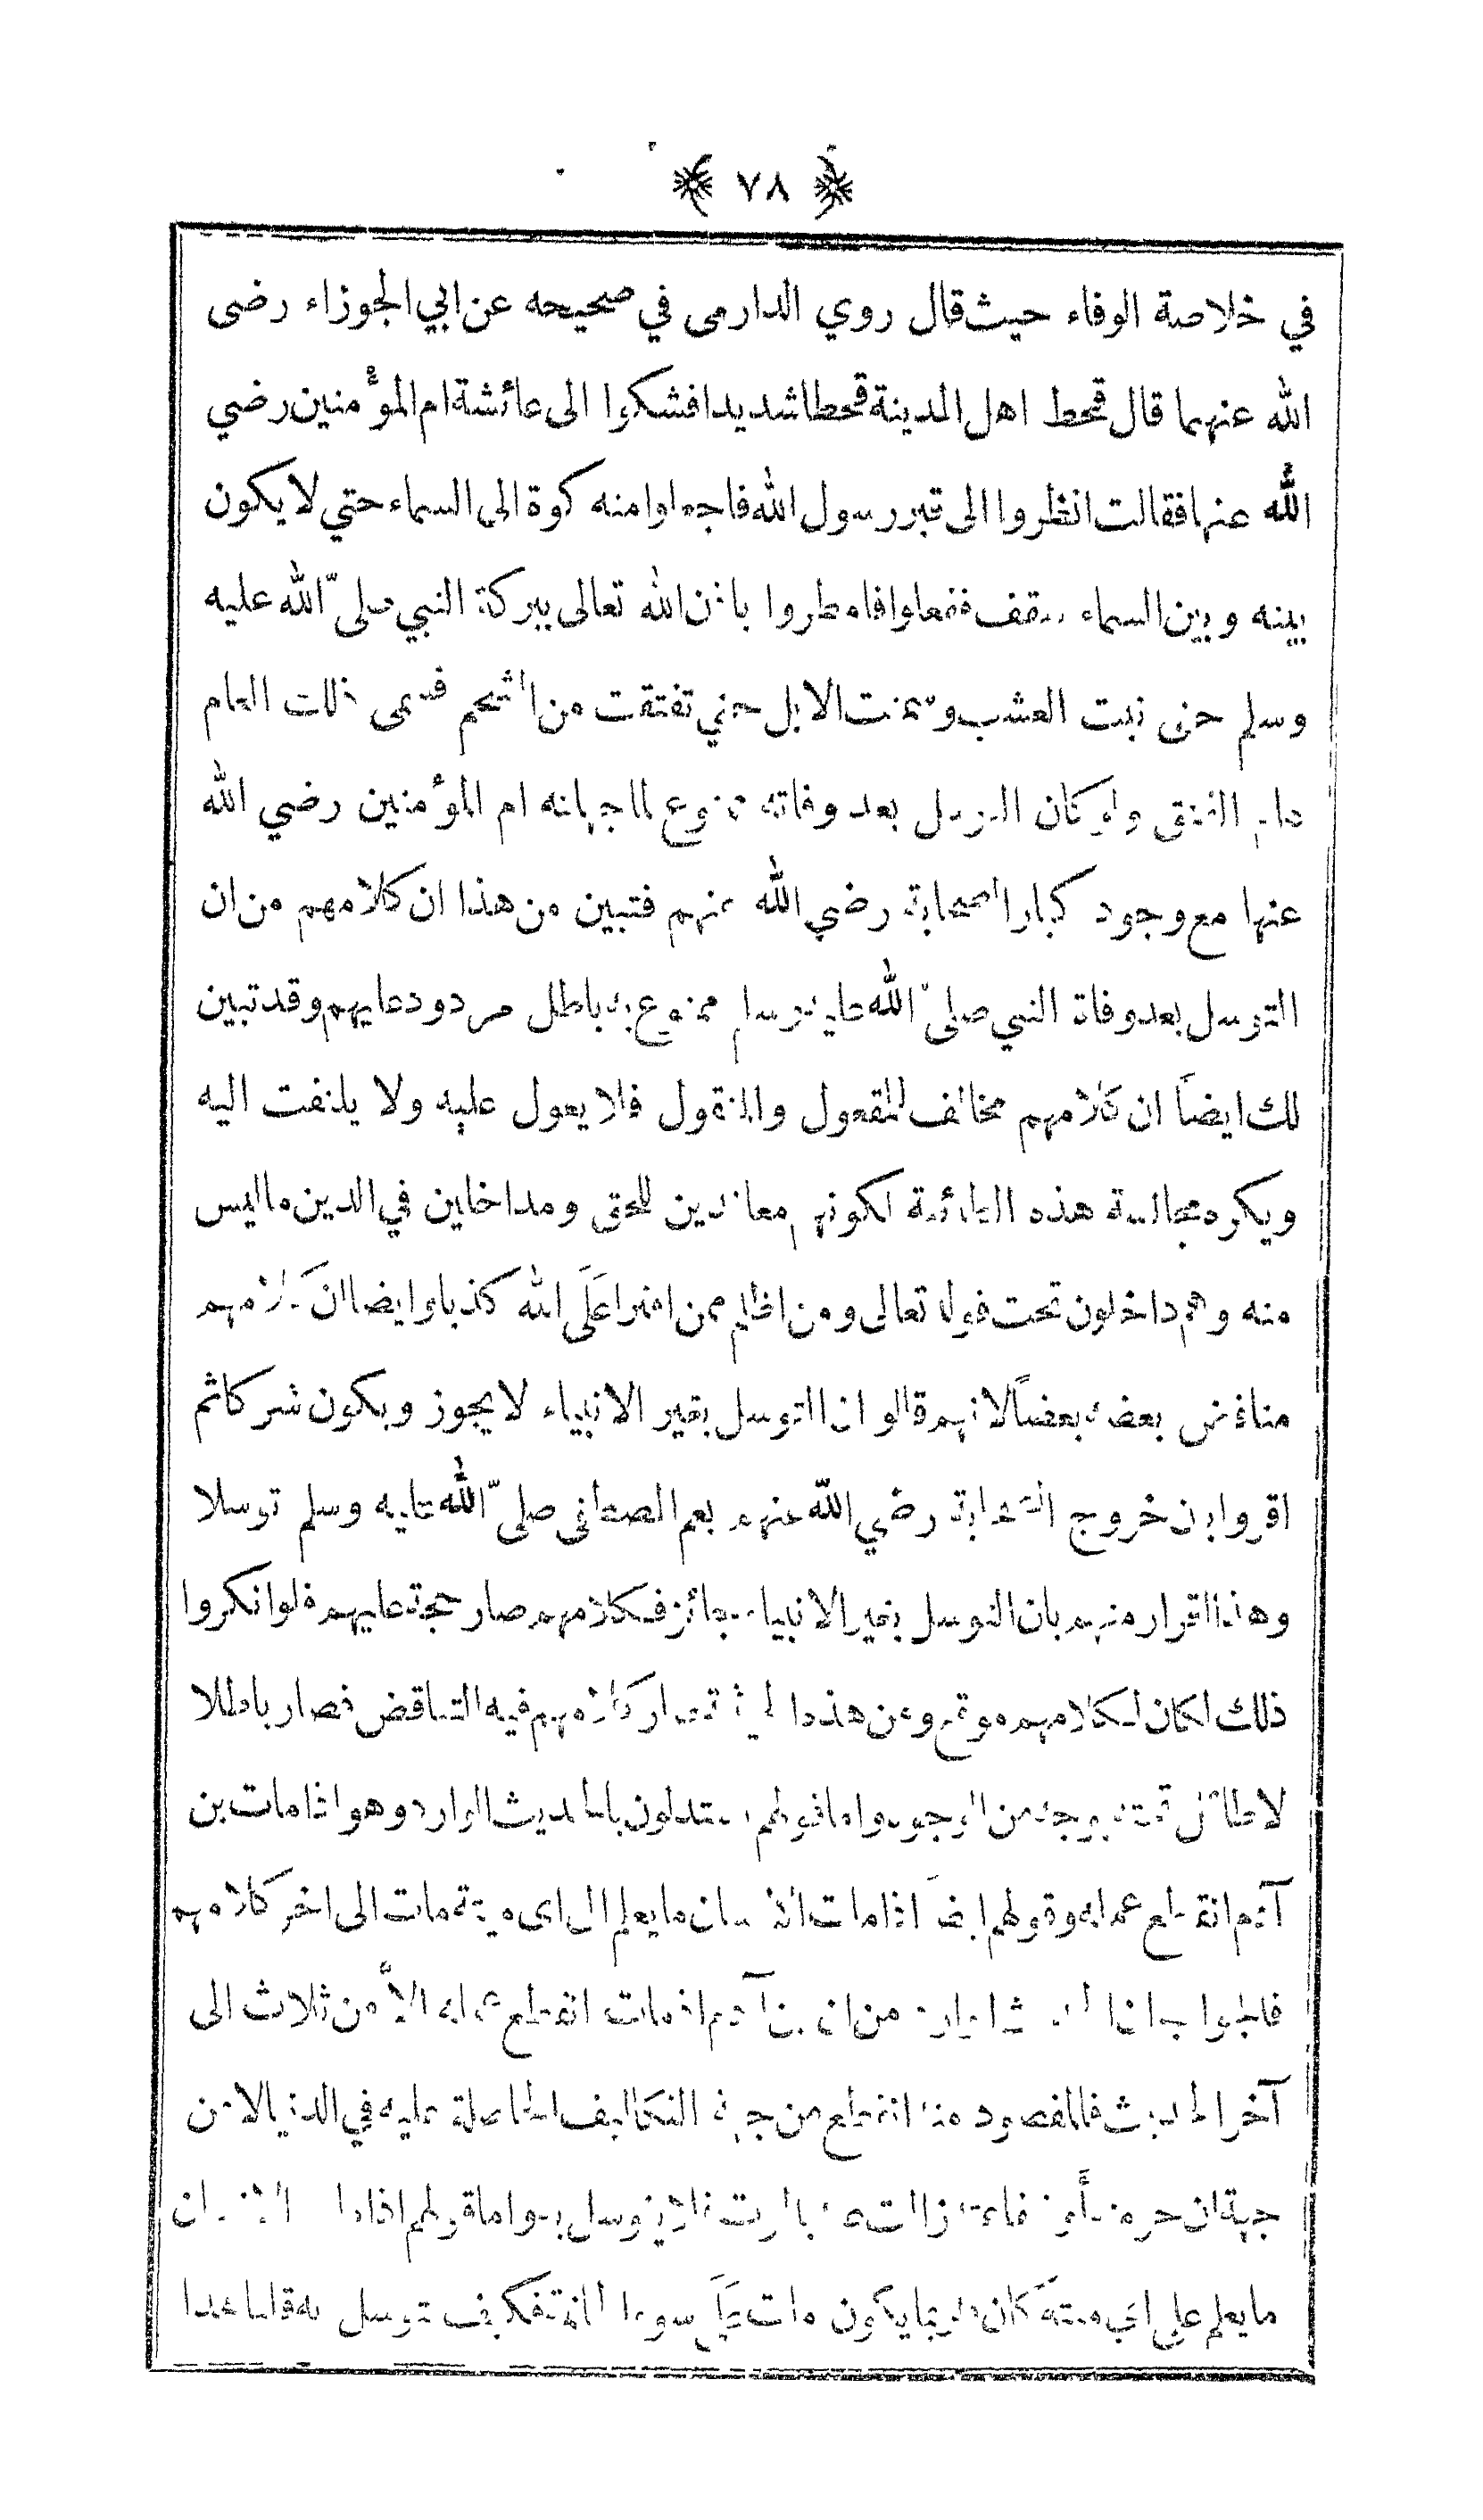 ﴿ ٧٨ ﴾
في خلاصة الوفاء حيث قال روي الدارمى في صحيحه عن ابي الجوزاء رضى
الله عنهما قال قحط اهل المدينة قحطا شديدا فشكوا الى عائشة ام المؤمنين رضي
الله عنها فقالت انظروا الى قبر رسول الله فاجعلوا منه كوة الى السماء حتي لا يكون
بينه وبين السماء سقف ففعلوا فامطروا باذن الله تعالى ببركة النبي صلى الله عليه
وسلم حتى نبت العشب وسمنت الابل حتي تفتقت من الشحم فسمى ذلك العام
عام الفتق ولو كان التوسل بعد وفاته ممنوع لما اجهلته ام المؤمنين رضي الله
عنها مع وجود كبار الصحابة رضي الله عنهم فتبين من هذا ان كلامهم من ان
التوسل بعد وفاة النبي صلى الله عليه وسلم ممنوع به باطل مردود عليهم وقد تبين
لك ايضاً ان كلامهم مخالف للمقعول والمنقول فلا يعول عليه ولا يلتفت اليه
ويكره مجالسة هذه الطائفة لكونهم معاندين للحق ومداخلين في الدين ما ليس
منه وهم داخلون تحت قوله تعالى ومن اظلم ممن افترا عَلَى الله كذبا وايضا ان كلامهم
مناقض بعضه بعضاً لانهم قالو ان التوسل بغير الانبياء لا يجوز ويكون شركا ثم
اقروا بان خروج الصحابة رضي الله عنهم بعم المصطفى صلى الله عليه وسلم توسلا
وهذا اقرار منهم بان التوسل بغير الانبياء جائز فكلامهم صار حجة عليهم فلو انكروا
ذلك لكان لكلامهم موقع ومن هذه الحيثية صار كلامهم فيه التناقض فصار باطلا
لا طائل تحته بوجه من الوجوه واما قولهم يستدلون بالحديث الوارد وهو اذا مات بن
آدم انقطع عمله وقولهم ايضاً اذا مات الانسان ما يعلم الى اى ميتة مات الى اخر كلامهم
فالجواب ان الحديث الوارد من ان بن آدم اذ مات انقطع عمله الاّ من ثلاث الى
آخر الحديث فالمقصود منه انقطع من جهة التكاليف الحاصلة عليه في الدنيا لا من
جهة ان حرمته فاتته زالت عنه بالموت فلا يتوسل به واما قولهم اذا مات الانسان
ما يعلم على اي ميتة كان مات عَلَى سوء الخاتمة فكيف توسل به قلنا هذا